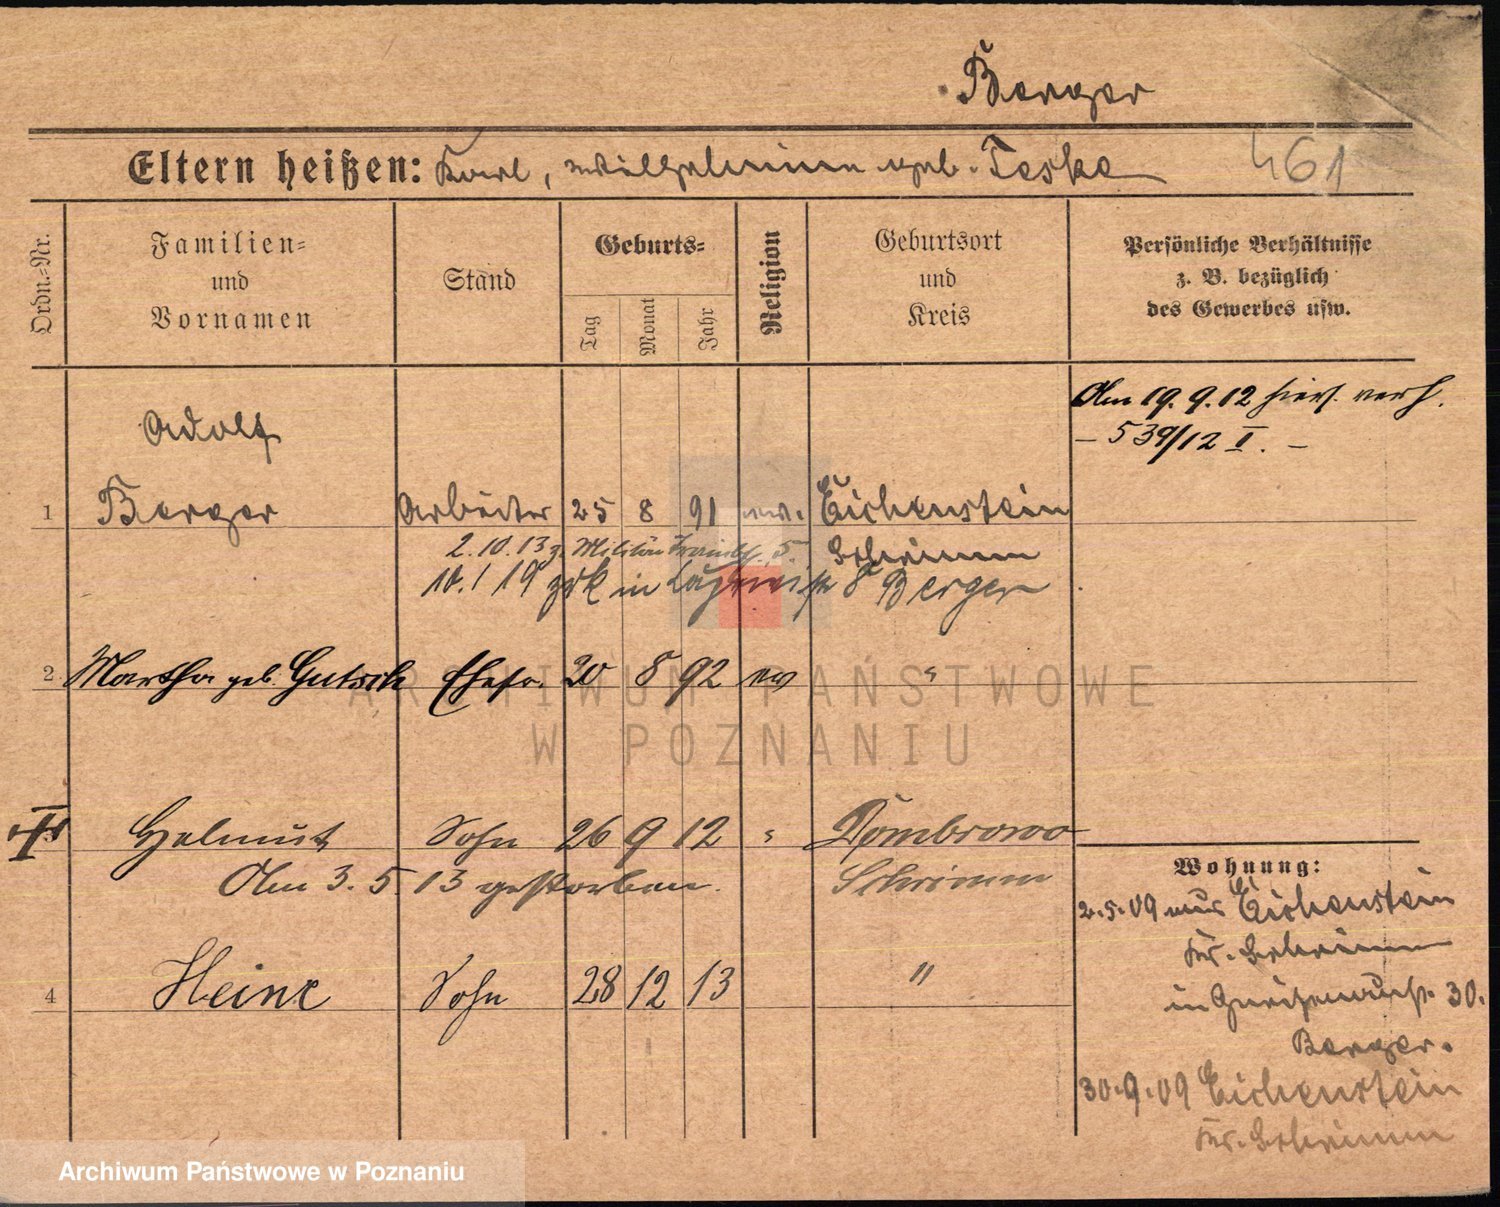 Berger
Eltern heißen: Karl, Wilhelmine geb. Teske
461
Ordn.-Nr.
Familien- und Vornamen
Stand
Geburts-
Tag
Monat
Jahr
Religion
Geburtsort und Kreis
Persönliche Verhältnisse
z. B. bezüglich
des Gewerbes usw.
Am 19.9.12 hiers. verh.
– 539/12 I. –
Adolf
1 Berger Arbeiter 25 8 91 ev. Eichenstein
2.10.13 z. Militär 5. Schrimm
10.1 19 zrk in 8 Berger
2 Martha geb. Gutsch Ehefr. 20 8 92 ev "
Helmut Sohn 26 9 12 " Dombrowo
Am 3.5.13 gestorben. Schrimm
4 Heinz Sohn 28 12 13 "
Wohnung:
2.5.09 aus Eichenstein
Kr. Schrimm
in 30.
Berger.
30.9.09 Eichenstein
Kr. Schrimm
ARCHIWUM PAŃSTWOWE
W POZNANIU
Archiwum Państwowe w Poznaniu